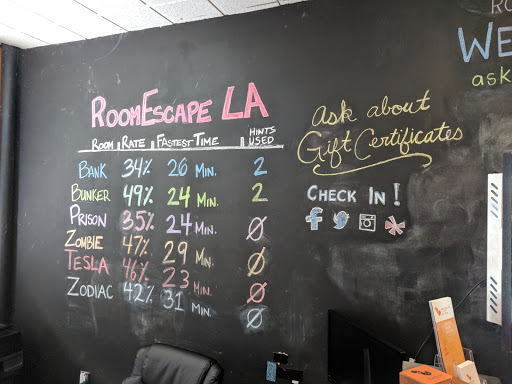 RoomEscape LA
Room | Rate | Fastest Time | Hints Used
Bank 34% 26 Min. 2
Bunker 49% 24 Min. 2
Prison 35% 24 Min. Ø
Zombie 47% 29 Min. Ø
Tesla 46% 23 Min. Ø
Zodiac 42% 31 Min. Ø
Ask about
Gift Certificates
Check In!
We
ask